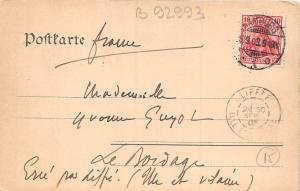 B 92993
Postkarte
france
Mademoiselle
Yvonne Guyot
Le Bordage
Ercé par Liffré (Ille et vilaine)
LIFFRÉ
15